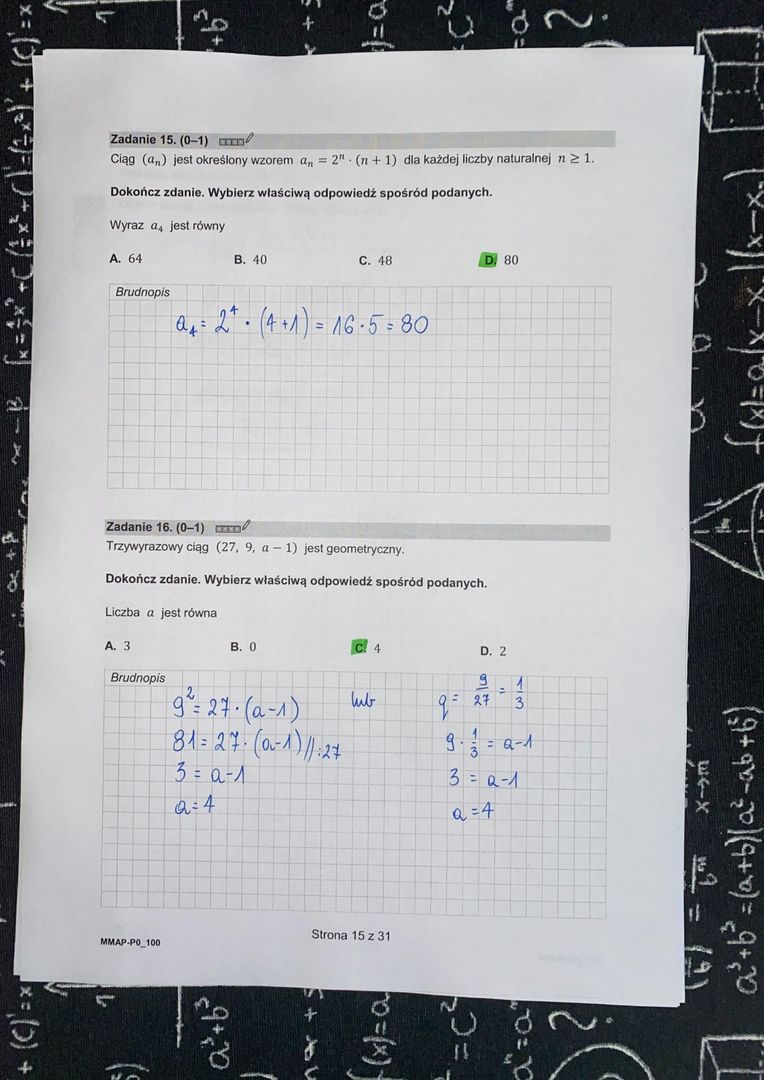 Zadanie 15. (0–1)
Ciąg (aₙ) jest określony wzorem aₙ = 2ⁿ · (n + 1) dla każdej liczby naturalnej n ≥ 1.
Dokończ zdanie. Wybierz właściwą odpowiedź spośród podanych.
Wyraz a₄ jest równy
A. 64 B. 40 C. 48 D. 80
Brudnopis
a₄ = 2⁴ · (4+1) = 16 · 5 = 80
Zadanie 16. (0–1)
Trzywyrazowy ciąg (27, 9, a − 1) jest geometryczny.
Dokończ zdanie. Wybierz właściwą odpowiedź spośród podanych.
Liczba a jest równa
A. 3 B. 0 C. 4 D. 2
Brudnopis
9² = 27 · (a−1)
81 = 27 · (a−1) //:27
3 = a−1
a = 4
lub
q = 9/27 = 1/3
9 · 1/3 = a−1
3 = a−1
a = 4
Strona 15 z 31
MMAP-P0_100
a³+b³ = (a+b)(a²-ab+b²)